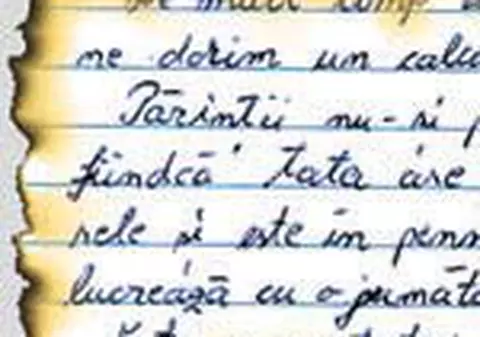 de mult timp
ne dorim un calcu
Părintii nu-si p
fiindcă tata are
rele si este în pens
lucrează cu o jumăta